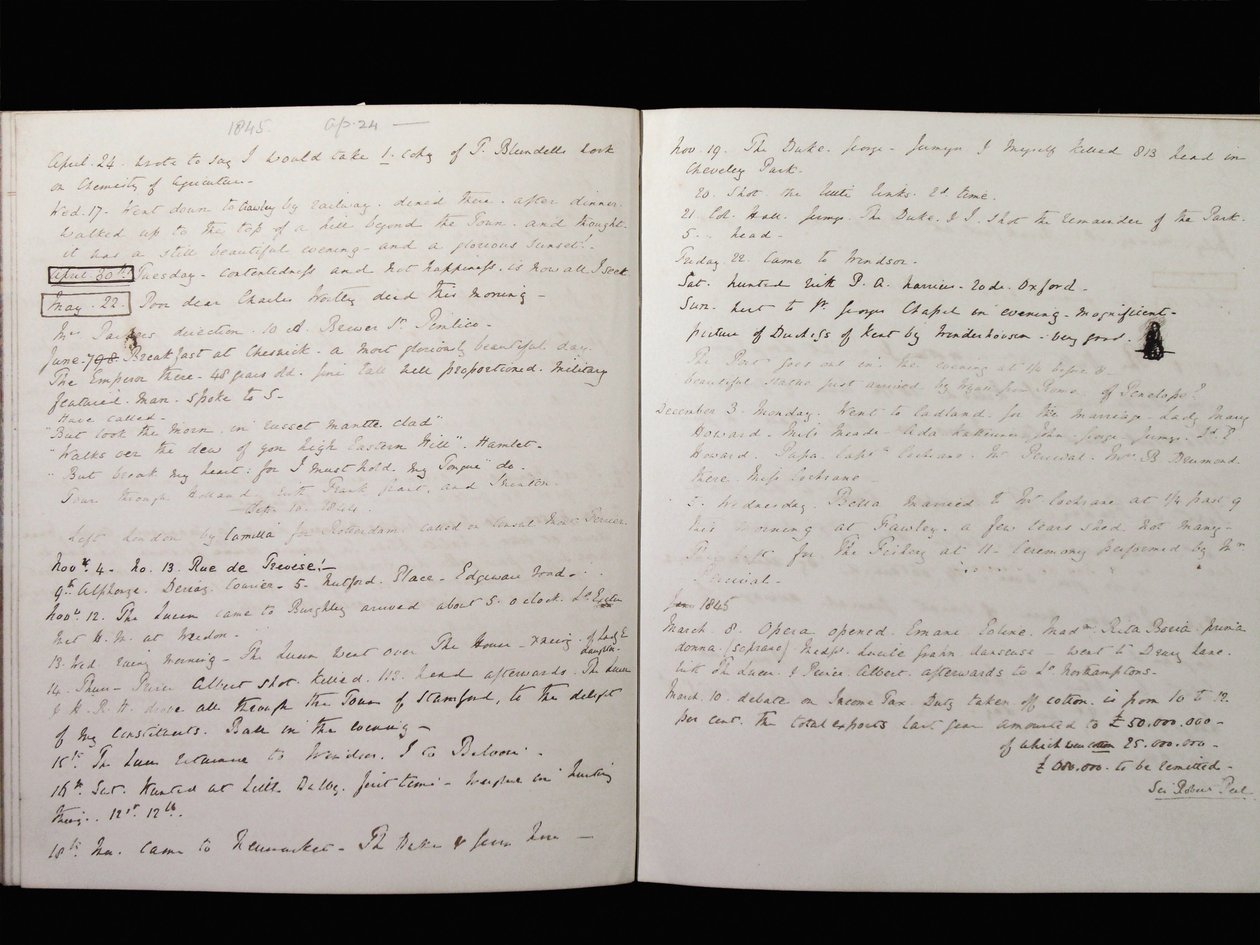 1845. Ap. 24 —
April. 24. wrote to say I would take 1. copy of T. Blundells work
on Chemistry of Agriculture -
Wed. 17. Went down to by railway. dined there. after dinner.
walked up to the top of a hill beyond the Town. and thought
it was a still beautiful evening - and a glorious Sunset. -
April. 30th. Tuesday - contentedness and not happiness. is now all I seek
May. 22. Poor dear Charles Wortley died this morning -
Mrs direction. 10 A. Brewer St. Pimlico -
June. 7 Breakfast at Cheswick. a most gloriously beautiful day.
The Emperor there. 48 years old. fine tall well proportioned. Military
featured. Man. Spoke to S -
Have called -
"But look the Morn. in russet mantle clad"
"Walks oer the dew of yon high Eastern Hill". Hamlet -
"But break my heart: for I must hold. my Tongue" do.
Tour through Holland. with Frank and
1844
Left London by Camilla for Rotterdam. called on Consul
Novr. 4. No. 13. Rue de Trevise! -
9th Alphonze. Courier. 5. Nutford. Place. Edgeware road -
Novr. 12. The Queen came to Burghley arrived about 5. o clock. Ld. Exeter
met H. M. at Weedon.
13. Wed. rainy morning - The Queen went over The House - of Lady E
daughter.
14. Thurs - Prince Albert shot. killed. 112. head afterwards. The Queen
& H. R. H. drove all through the Town of Stamford, to the delight
of my constituents. Ball in the evening -
15th. The Queen returned to Windsor. I to Belvoir. -
16th. Sat. Hunted at Little Dalby. first time -
12st. 12lb.
18th. Mon. came to Newmarket - The Duke & here -
Nov. 19. The Duke. George - Jermyn & Myself killed 813 head in
Cheveley Park.
20. Shot the little 2d time.
21. Col. Hall. Jermyn. The Duke. & I. shot the remainder of the Park.
5 head -
Friday. 22. Came to Windsor.
Sat. hunted with P. A. harriers - rode. Oxford -
Sun. went to St. Georges Chapel in evening - magnificent -
picture of Duchess of Kent by Winterhalter - very good.
The goes out in the evening at 1/4 before 8 -
beautiful statue just arrived by from Rome. of Penelope?
December 3. Monday. Went to Cadland. for the marriage. Lady Mary
Howard. Miss Meade. Ada John. George. Jermyn. Ld. E
Howard. Papa. Captn. Cochrane. Mr. Percival. Mr. B Drumond.
there. Miss Cochrane -
Wednesday. Bella married to Mr. Cochrane at 1/4 past 9
this morning at Fawley. a few tears shed. not many -
They left for The Fishery at 11 - Ceremony performed by Mr
Percival -
1845
March. 8. Opera opened. Ernani. Eoline. Madm. Rita Borio. prima
donna (soprano) Madsle. Lucile Grahn. danseuse - went to Drury Lane.
with The Queen. & Prince Albert. afterwards to Ld. Northamptons -
March. 10. debate on Income Tax. Duty taken off cotton. is from 10 to 12
per cent. The total exports last year amounted to £50.000.000 -
of which was cotton 25.000.000 -
£680.000. to be remitted -
Sir Robert Peel